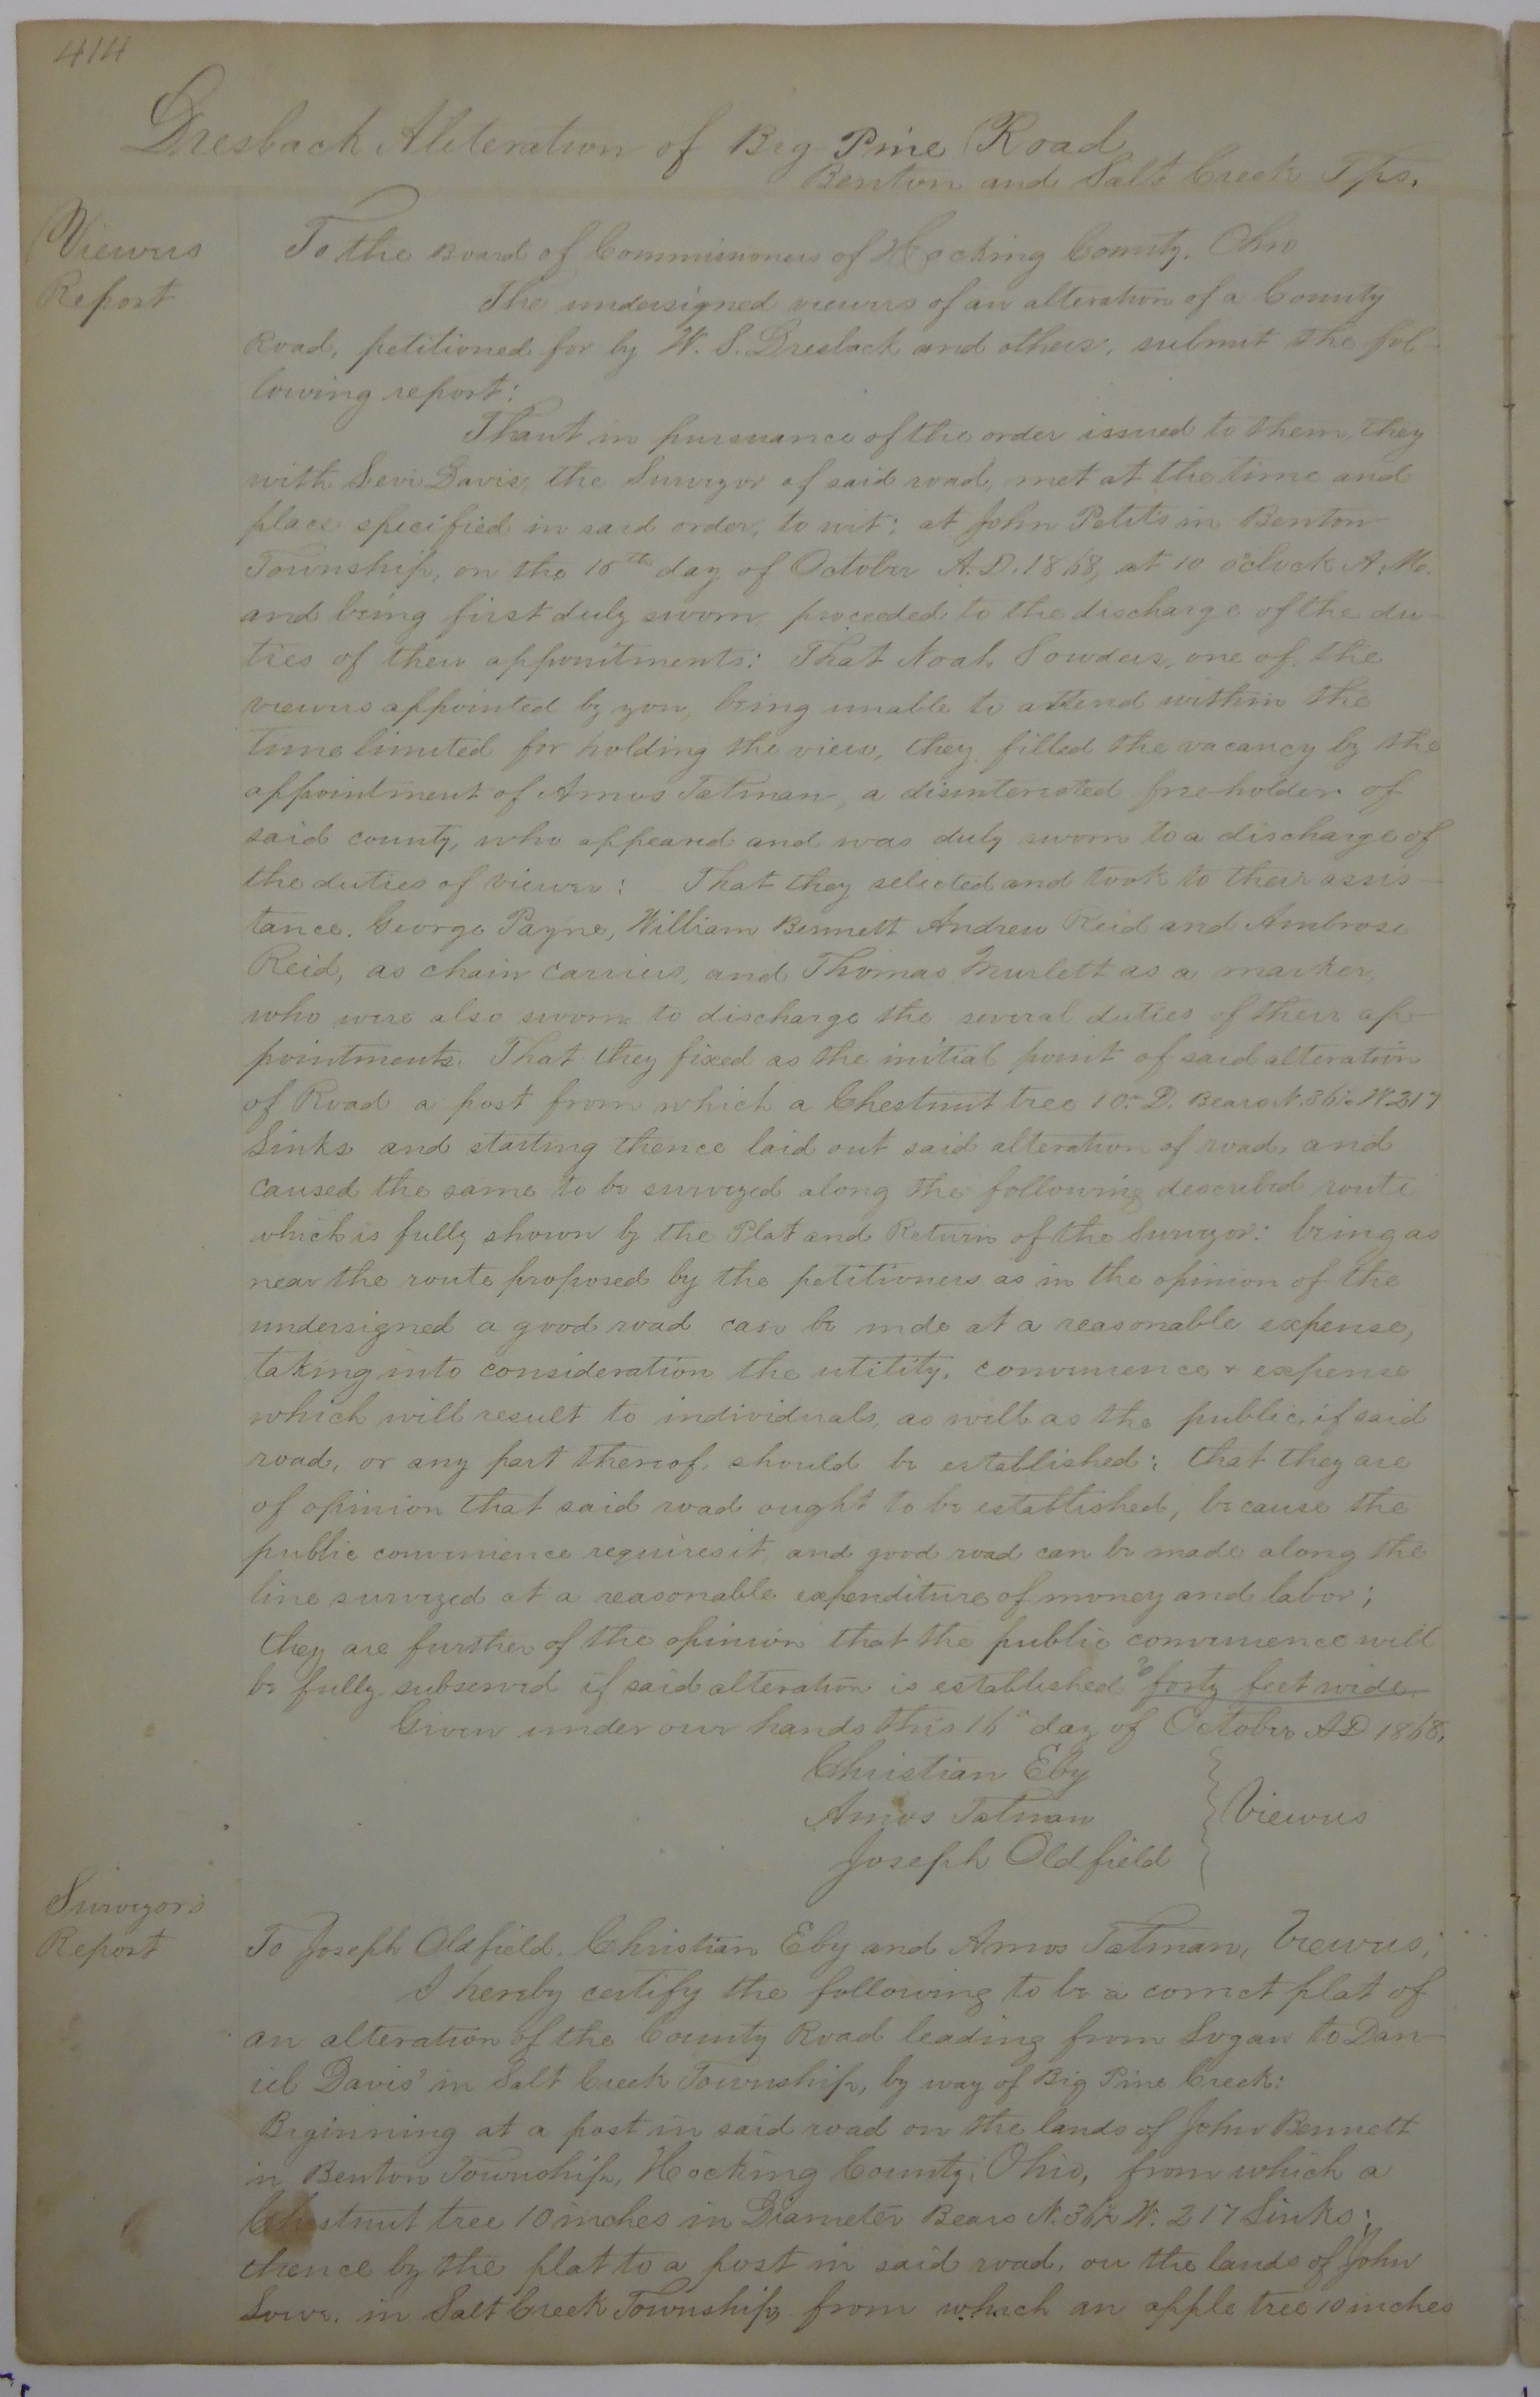 414
Dresback Aliteration of Big Pine Road
Benton and Salt Creek Tps.
Viewers
Report
To the Board of Commissioners of Hocking County, Ohio
The undersigned viewers of an alteration of a County
Road, petitioned for by W. S. Dresback and others, submit the fol-
lowing report:
Thaut in pursuance of the order issued to them, they
with Levi Davis, the Surveyor of said road, met at the time and
place specified in said order, to wit: at John Petits in Benton
Township, on the 16th day of October A.D. 1868, at 10 o'clock A.M.
and being first duly sworn proceeded to the discharge of the du-
ties of their appointments: That Noah Sowders, one of the
viewers appointed by you, being unable to attend within the
time limited for holding the view, they filled the vacancy by the
appointment of Amos Tatman, a disinterested free-holder of
said county, who appeard and was duly sworn to a discharge of
the duties of viewer: That they selected and took to their assis-
tance. George Payne, William Bennett Andrew Reid and Ambrose
Reid, as chain carriers, and Thomas as a marker,
who were also sworn to discharge the several duties of their ap-
pointments. That they fixed as the initial point of said alteration
of Road a post from which a Chestnut tree 10in D. Bears N. 36½ W. 217
Links and starting thence laid out said alteration of road, and
caused the same to be surveyed along the following described route
which is fully shown by the Plat and Return of the Surveyor: being as
near the route proposed by the petitioners as in the opinion of the
undersigned a good road can be mde at a reasonable expense,
taking into consideration the utility, convenience & expense
which will result to individuals, as well as the public, if said
road, or any part thereof, should be established; that they are
of opinion that said road ought to be established, because the
public convenience requires it, and good road can be made along the
line surveyed at a reasonable expenditure of money and labor;
they are further of the opinion that the public convenience will
be fully subserved if said alteration is established to forty feet wide.
Given under our hands this 16" day of October AD 1868,
Christian Eby
Amos Tatman } Viewers
Joseph Oldfield
Surveyors
Report
To Joseph Oldfield, Christian Eby and Amos Tatman, Viewers;
I hereby certify the following to be a correct plat of
an alteration of the County Road leading from Logan to Dan-
iel Davis' in Salt Creek Township, by way of Big Pine Creek:
Beginning at a post in said road on the lands of John Bennett
in Benton Township, Hocking County, Ohio, from which a
Chestnut tree 10 inches in Diameter Bears N. 36½ W. 217 Links;
thence by the plat to a post in said road, on the lands of John
in Salt Creek Township, from which an apple tree 10 inches